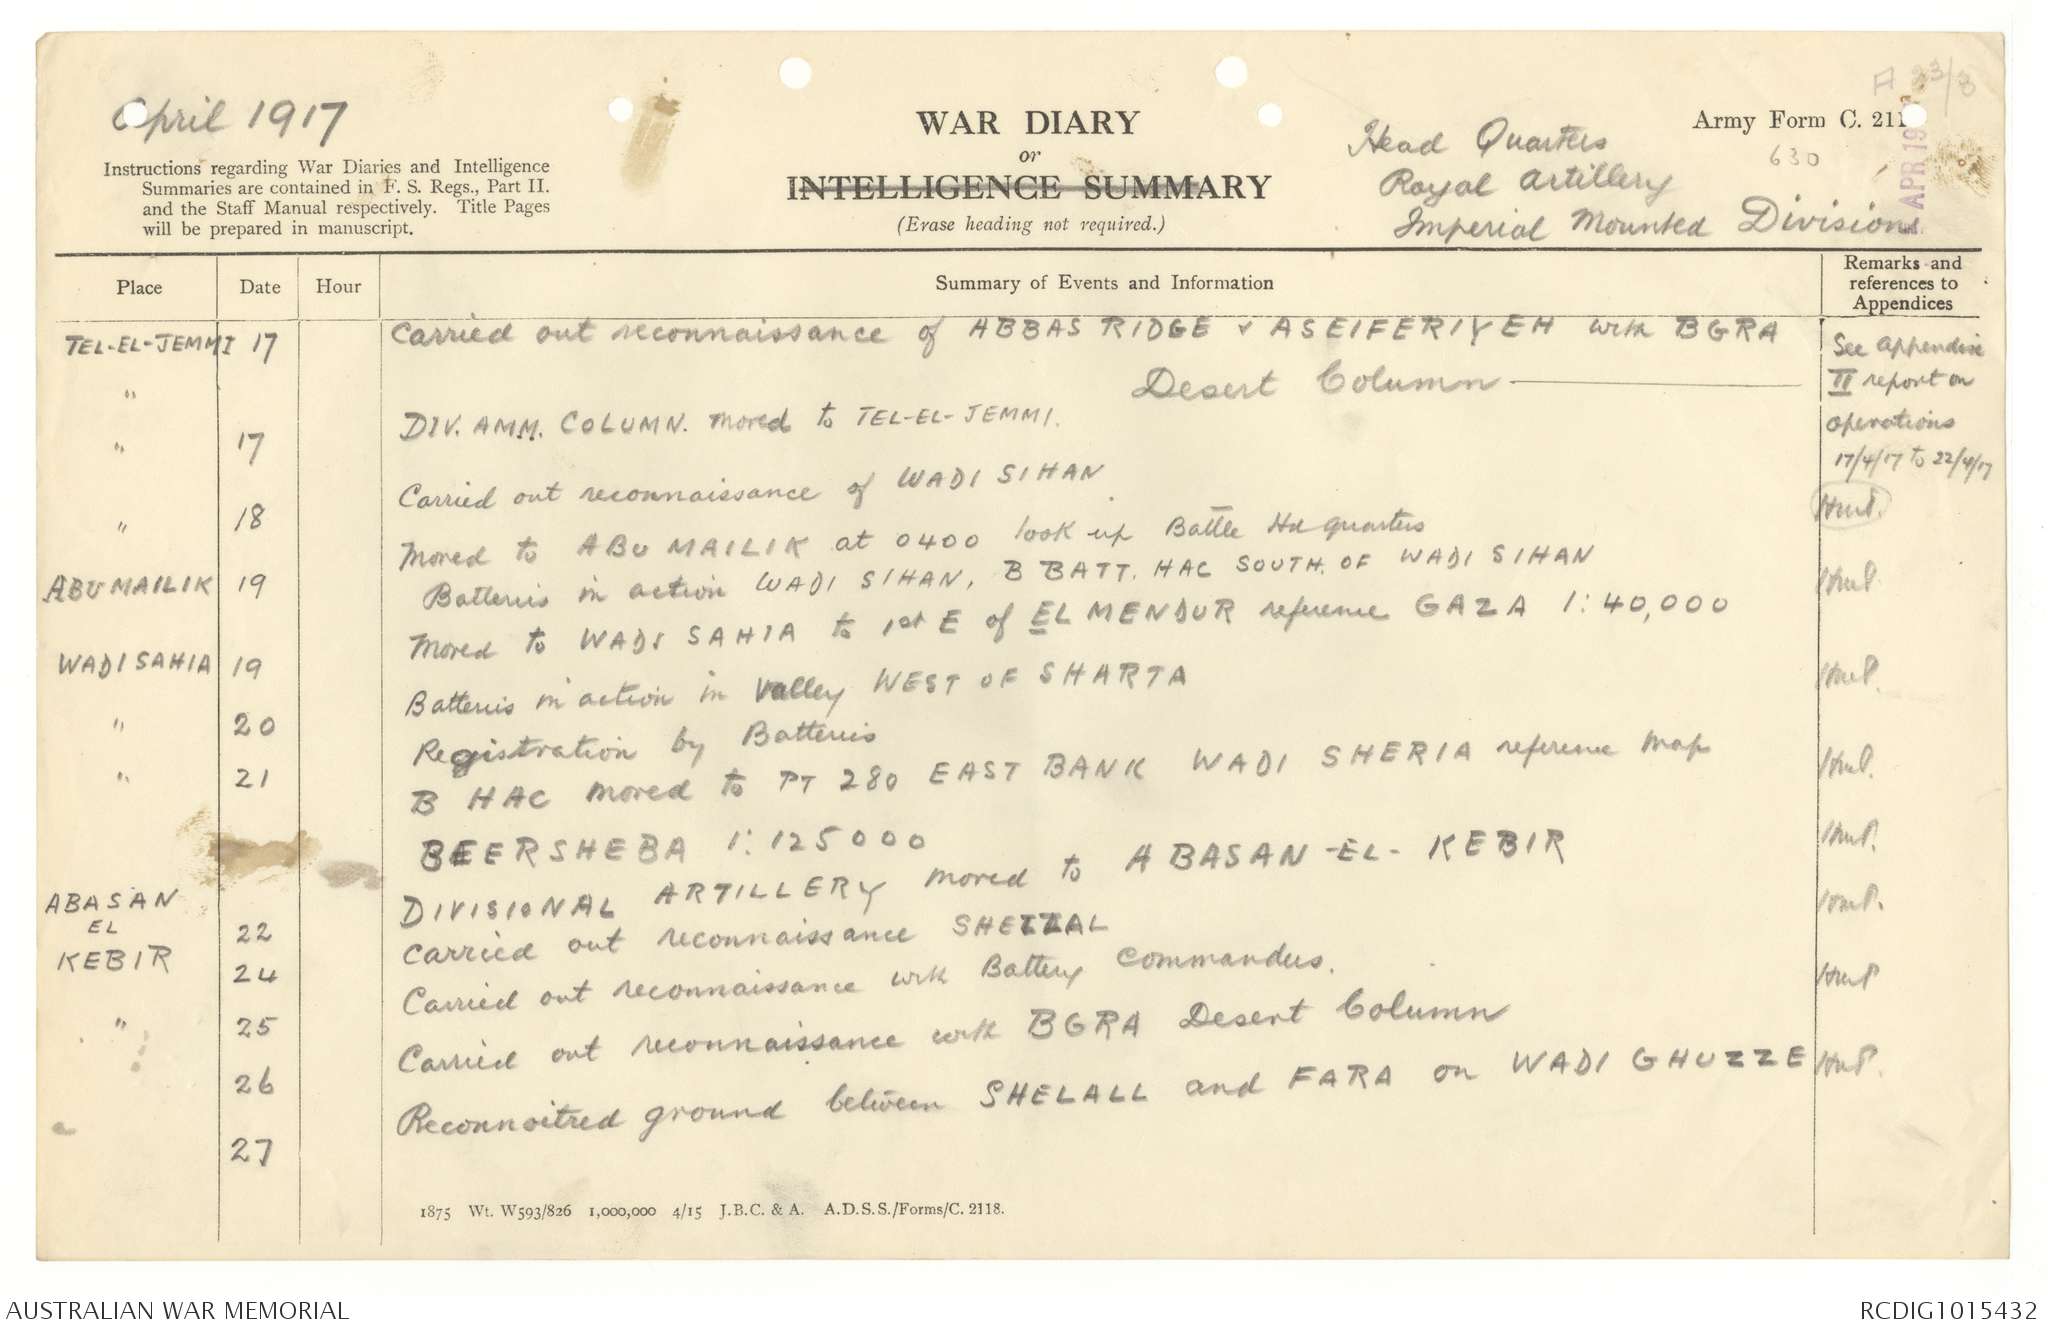 April 1917
Instructions regarding War Diaries and Intelligence
Summaries are contained in F. S. Regs., Part II.
and the Staff Manual respectively. Title Pages
will be prepared in manuscript.
WAR DIARY
or
INTELLIGENCE SUMMARY
(Erase heading not required.)
Army Form C. 211
630
Head Quarters
Royal Artillery
Imperial Mounted Division
APR 19
Place Date Hour Summary of Events and Information Remarks and references to Appendices
TEL-EL-JEMMI 17 Carried out reconnaissance of ABBAS RIDGE & ASEIFERIYEH with BGRA See appendix
" Desert Column II report on
" 17 DIV. AMM. COLUMN. moved to TEL-EL-JEMMI. operations
17/4/17 to 22/4/17
" 18 Carried out reconnaissance of WADI SIHAN HmP.
Moved to ABU MAILIK at 0400 took up Battle Hd quarters
ABU MAILIK 19 Batteries in action WADI SIHAN, B BATT. HAC SOUTH. OF WADI SIHAN HmP
Moved to WADI SAHIA to 1st E of EL MENDUR reference GAZA 1:40,000
WADI SAHIA 19 Batteries in action in Valley WEST OF SHARTA HmP.
" 20 Registration by Batteries
" 21 B HAC moved to PT 280 EAST BANK WADI SHERIA reference Map HmP.
BEERSHEBA 1:125000 HmP.
ABASAN DIVISIONAL ARTILLERY moved to ABASAN-EL-KEBIR HmP.
EL 22 Carried out reconnaissance SHEZZAL
KEBIR 24 Carried out reconnaissance with Battery Commanders. HmP
" 25 Carried out reconnaissance with BGRA Desert Column
26 Reconnoitred ground between SHELALL and FARA on WADI GHUZZE HmP.
27
1875 Wt. W593/826 1,000,000 4/15 J.B.C. & A. A.D.S.S./Forms/C. 2118.
AUSTRALIAN WAR MEMORIAL
RCDIG1015432